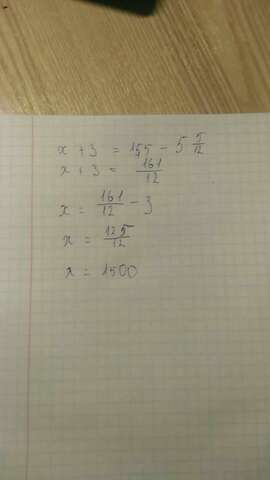 x + 3 = 15,5 - 5 5/12
x + 3 = 161/12
x = 161/12 - 3
x = 125/12
x = 1500